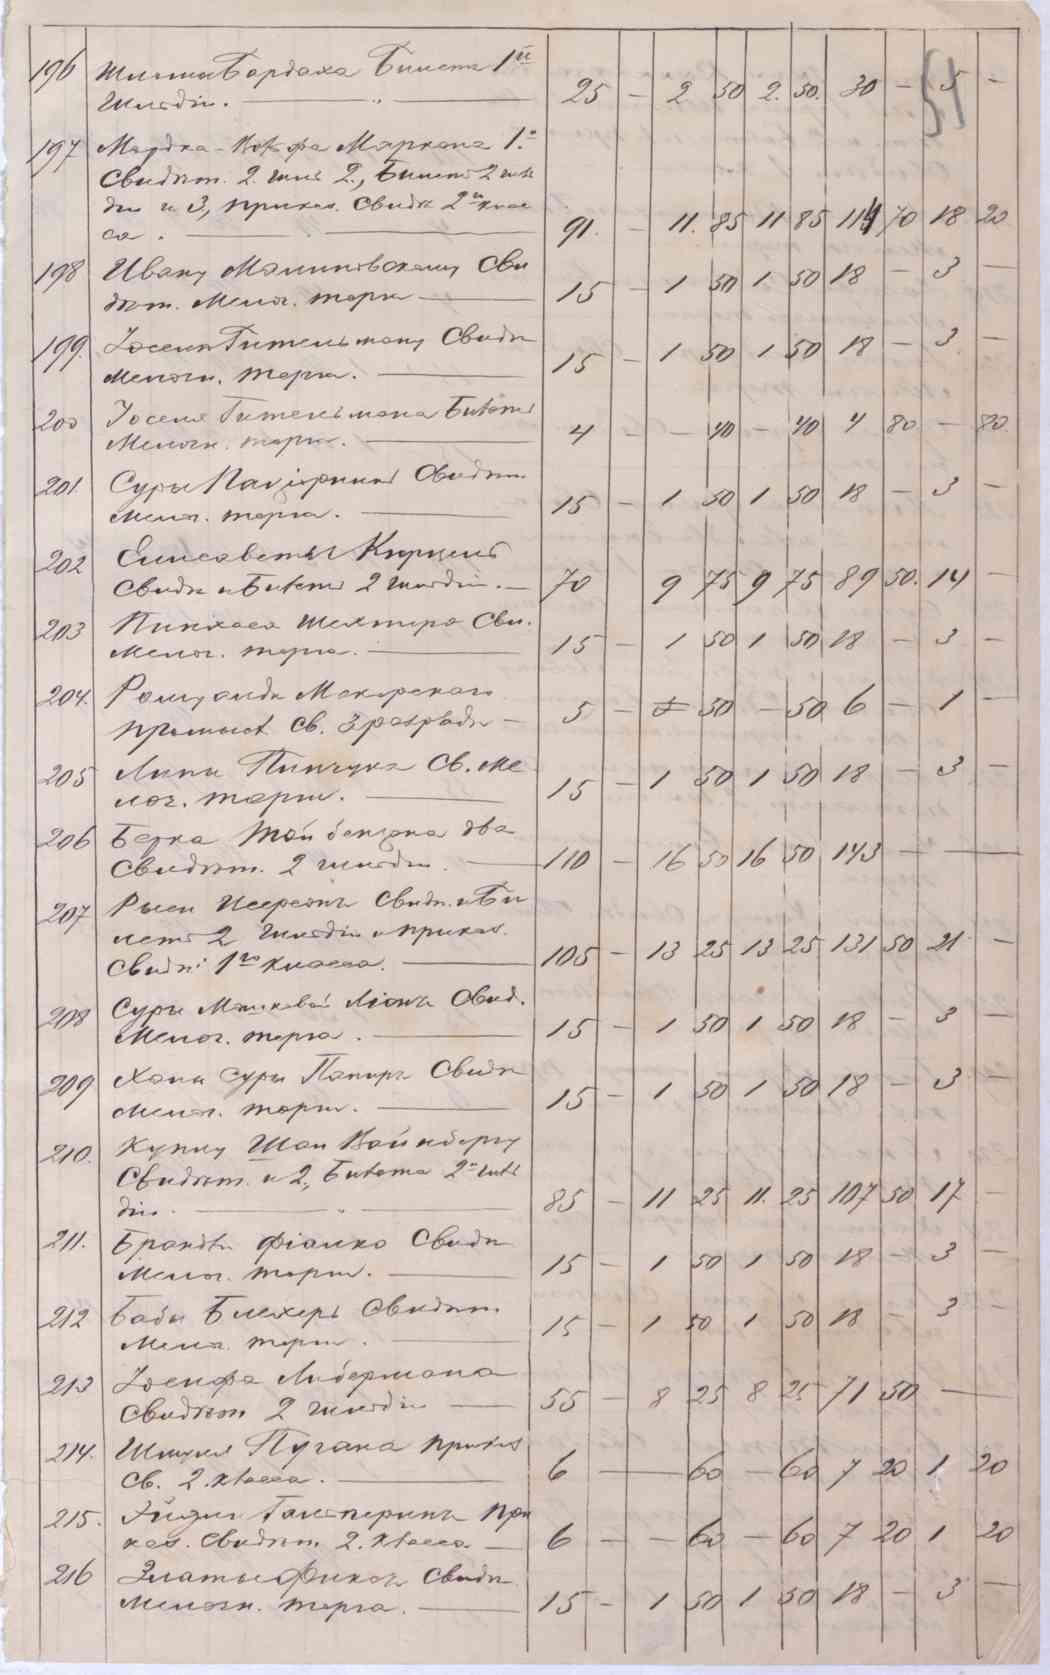 51
196 Шмули Бардаха Билета 1й
Гильдіи. — " — 25 — 2 50 2. 50. 30 — 5 —
197 Мордка-Іосфа Маркана 1.
Свидѣт. 2 гил. 2., Билет 2 гиль
діи и 3, приказ. свидѣ 2го клас
са. — 91. — 11. 85 11 85 114 70 18 20
198 Ивану Малиновскому Сви
дѣт. Мелоч. торга — 15 — 1 50 1 50 18 — 3 —
199. Іоселя Гительману Свидѣ
мелочн. торга. — 15 — 1 50 1 50 18 — 3 —
200 Іоселя Гительмана Билетъ
Мелочн. торга. — 4 — — 40 — 40 4 80 — 80
201. Суры Свидѣт.
мелоч. торга. — 15 — 1 50 1 50 18 — 3 —
202 Елисаветы Курцель
Свидѣ и Билетъ 2 гильдіи. — 70 9 75 9 75 89 50. 14 —
203 Пинхаса Шехтера Сви.
мелоч. торга. — 15 — 1 50 1 50 18 — 3 —
204. Ромуальда Макарскаго
промысл. св. 3 разряда — 5 — — 50 — 50 6 — 1 —
205 Липы Пинчука Св. ме
лоч. торга. — 15 — 1 50 1 50 18 — 3 —
206 Берка два
Свидѣт. 2 гильдіи. — 110 — 16 50 16 50 143 — —
207 Рыси Свидѣ. и Би
летъ 2 гильдіи и приказ.
Свидѣ. 1го класса. — 105 — 13 25 13 25 131 50 21 —
208 Суры Свид.
Мелоч. торга. — 15 — 1 50 1 50 18 — 3 —
209 Ханы Суры Папиръ Свидѣ
мелоч. торга. — 15 — 1 50 1 50 18 — 3 —
210. Купцу Шаи Вайнбергу
Свидѣт. и 2, Билета 2й гиль
діи. — " — 85 — 11 25 11. 25 107 50 17 —
211. Брандли Фіалко Свидѣ
Мелоч. торга. — 15 — 1 50 1 50 18 — 3 —
212 Баси Блехеръ Свидѣт.
Мелоч. торга. — 15 — 1 50 1 50 18 — 3 —
213 Іосифа Либермана
Свидѣт 2 гильдіи — 55 — 8 25 8 25 71 50 —
214. Шмуля Пугача приказ
св. 2. класса. — 6 — — 60 — 60 7 20 1 20
215. Гальперинъ при
каз. Свидѣт. 2. класса — 6 — — 60 — 60 7 20 1 20
216 Златы Свидѣ
Мелочн. торга. — 15 — 1 50 1 50 18 — 3 —